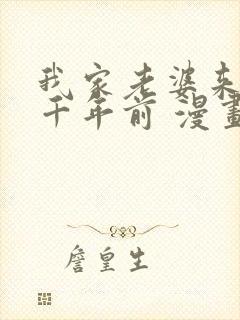 我家老婆来
千年前 漫畫
詹皇生